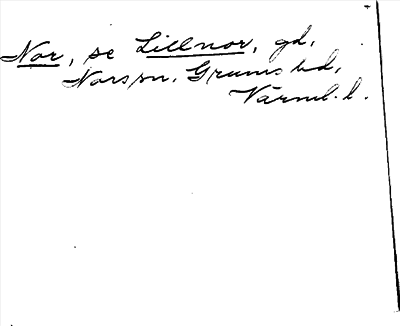 Nor, se Lillnor, gd,
Nors sn. Grums hd,
Värml. l.